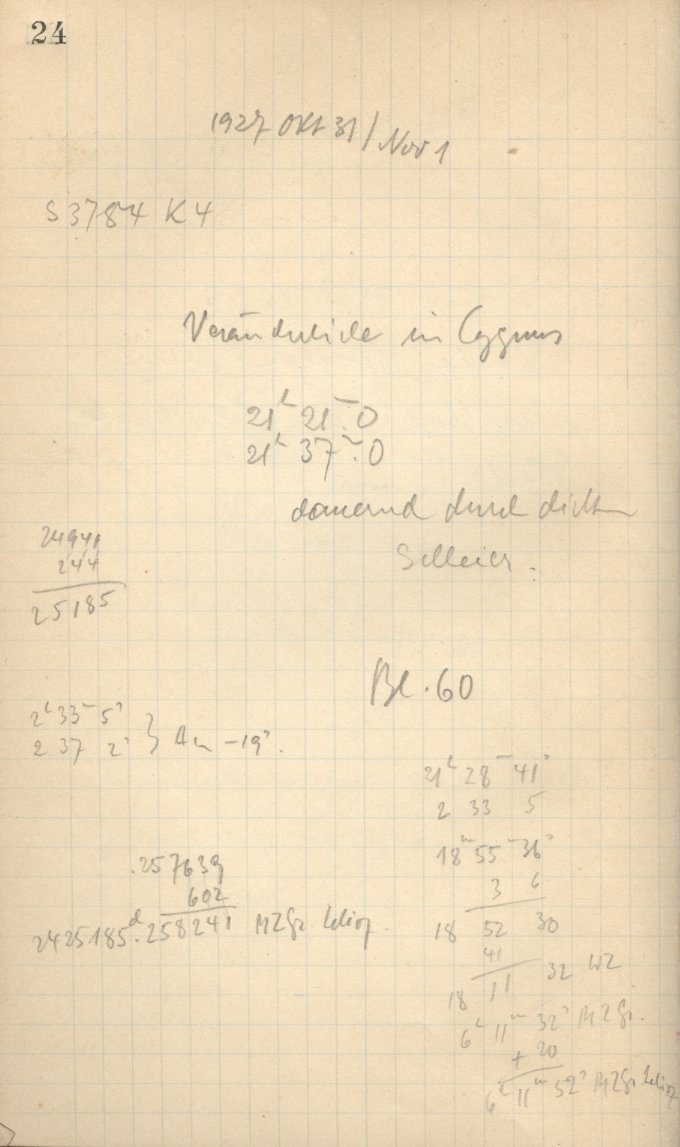 24
1927 Okt 31/Nov 1
S 3784 K 4
Veränderliche in Cygnus
21ʰ 21ᵐ.0
21ʰ 37ᵐ.0
dauernd durch dichten
Schleier.
24941
244
25185
Bl. 60
2ʰ 33ᵐ 5ˢ
2 37 2ˢ } −19ˢ.
21ʰ 28ᵐ 41ˢ
2 33 5
18ʰ 55ᵐ 36ˢ
3 6
18 52 30
41
18 11 32 WZ
6ʰ 11ᵐ 32ˢ MZGr.
+ 20
6ʰ 11ᵐ 52ˢ MZGr helioz
.257639
602
2425185ᵈ.258241 MZGr helioz.